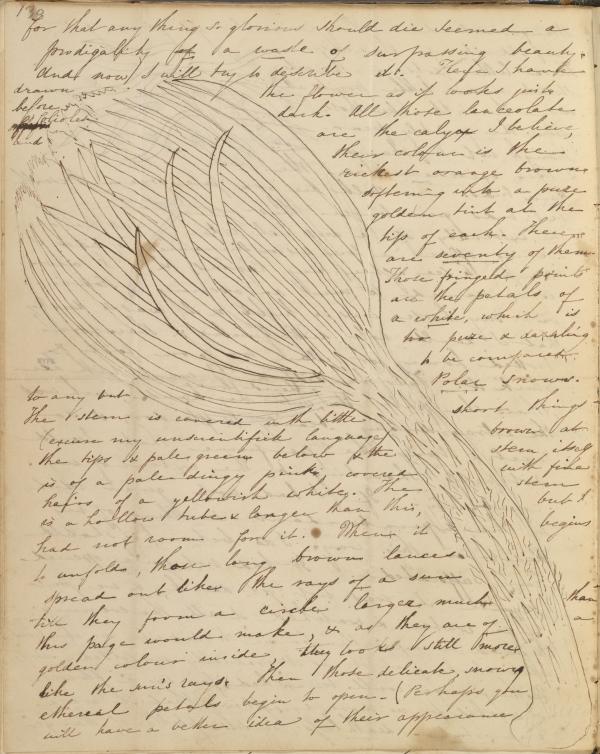 133
for that any thing so glorious should die seemed a
prodigality of a waste of surpassing beauty.
And now I will try to describe it. There I have
drawn the flower as it looks just
before dark. All those lanceolate
and are the calyx I believe,
their colour is the
richest orange brown
softening into a pure
golden tint at the
tips of each. There
are seventy of them.
Those fringed points
are the petals of
a white, which is
too pure & dazzling
to be compared
to any but Polar snows.
The stem is covered with little short things
(excuse my unscientifick language) brown at
the tips & pale green below & the stem itself
is of a pale dingy pink covered with fine
hairs of a yellowish white. The stem
is a hollow tube & longer than this, but I
had not room for it. When it begins
to unfold, those long brown lances
spread out like the rays of a sun
till they form a circle larger much than
this page would make, & as they are of a
golden colour inside they look still more
like the sun's rays. Then those delicate snowy
ethereal petals begin to open. (Perhaps you
will have a better idea of their appearance